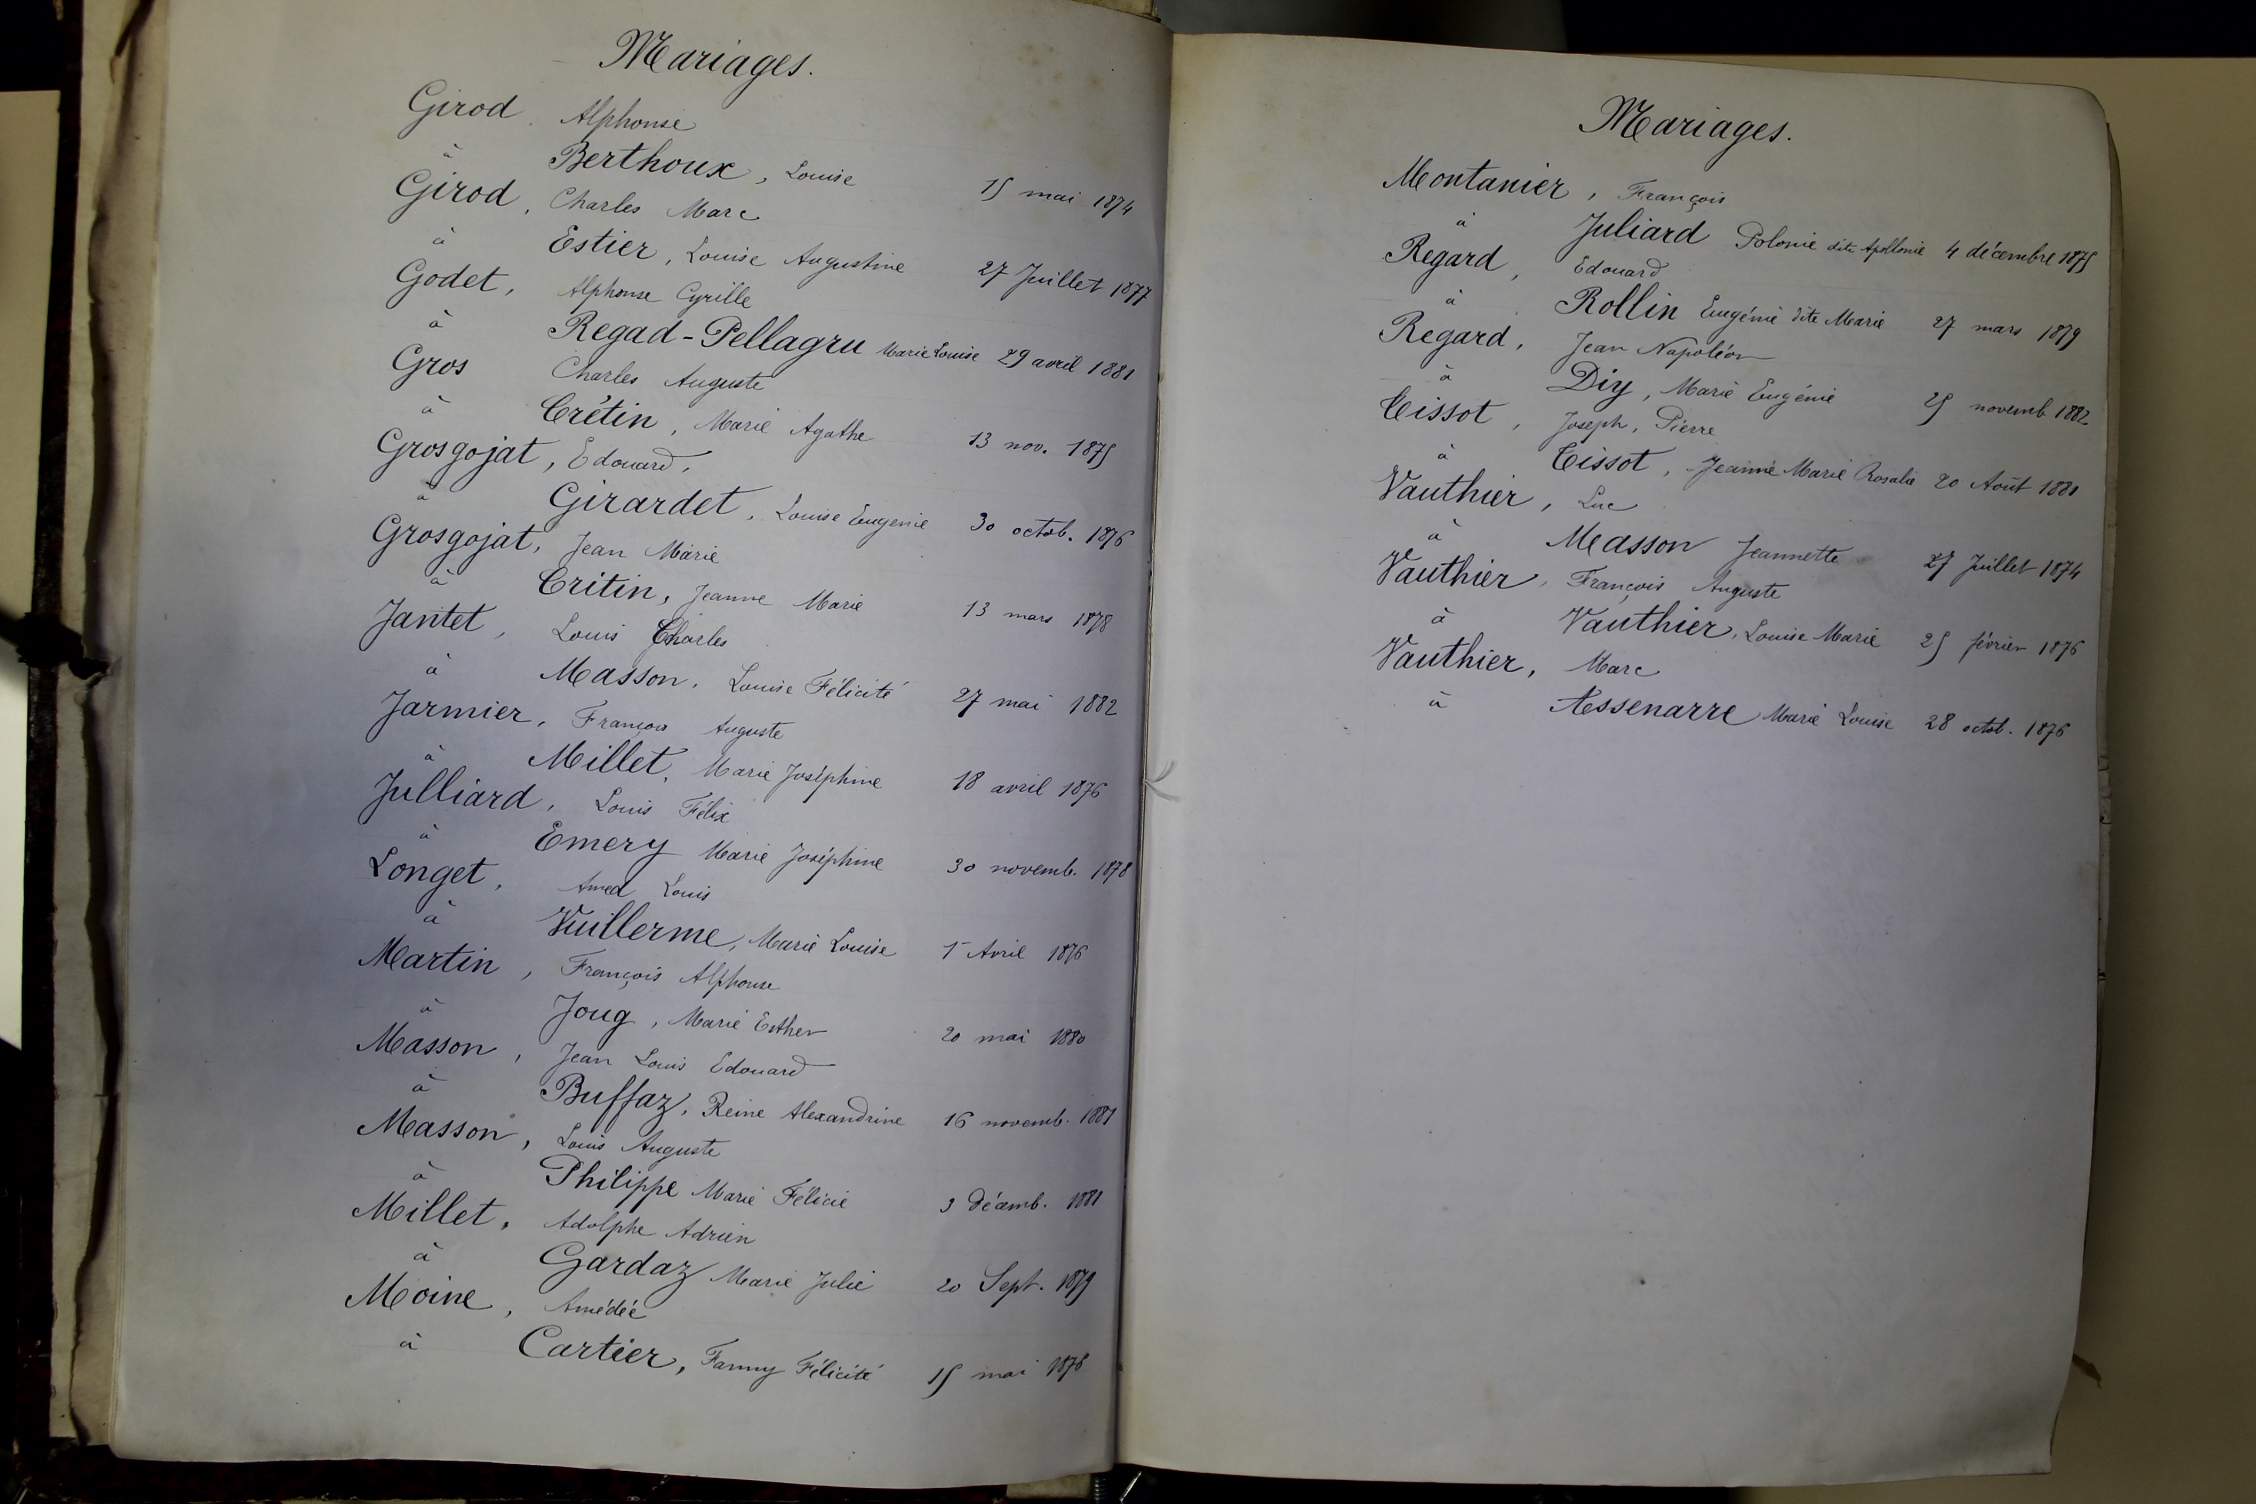 Mariages.
Girod. Alphonse
à Berthoux, Louise 15 mai 1874
Girod, Charles Marc
à Estier, Louise Augustine 27 Juillet 1877
Godet, Alphonse Cyrille
à Regad-Pellagru Marie Louise 29 avril 1881
Gros Charles Auguste
à Crétin, Marie Agathe 13 nov. 1875
Grosgojat, Edouard,
à Girardet, Louise Eugenie 30 octob. 1876
Grosgojat, Jean Marie
à Critin, Jeanne Marie 13 mars 1878
Jantet, Louis Charles
à Masson, Louise Félicité 27 mai 1882
Jarmier, François Auguste
à Millet, Marie Joséphine 18 avril 1876
Julliard, Louis Félix
à Emery Marie Joséphine 30 novemb. 1878
Longet, Amed Louis
à Vuillerme, Marie Louise 1er Avril 1876
Martin, François Alphonse
à Joug, Marie Esther 20 mai 1880
Masson, Jean Louis Edouard
à Buffaz, Reine Alexandrine 16 novemb. 1881
Masson, Louis Auguste
à Philippe Marie Félicie 3 décemb. 1881
Millet, Adolphe Adrien
à Gardaz Marie Julie 20 Sept. 1879
Moine, Amédée
à Cartier, Fanny Félicité 15 mai
Mariages.
Montanier, François
à Juliard Polonie dite Apollonie 4 décembre 1875
Regard, Edouard
à Rollin Eugénie dite Marie 27 mars 1879
Regard, Jean Napoléon
à Diy, Marie Eugénie 25 novemb 1882
Tissot, Joseph, Pierre
à Tissot, Jeanne Marie Rosalie 20 Août
Vauthier, Luc
à Masson Jeannette 27 Juillet 1874
Vauthier, François Auguste
à Vauthier, Louise Marie 25 février 1876
Vauthier, Marc
à Assenarre Marie Louise 28 octob. 1876